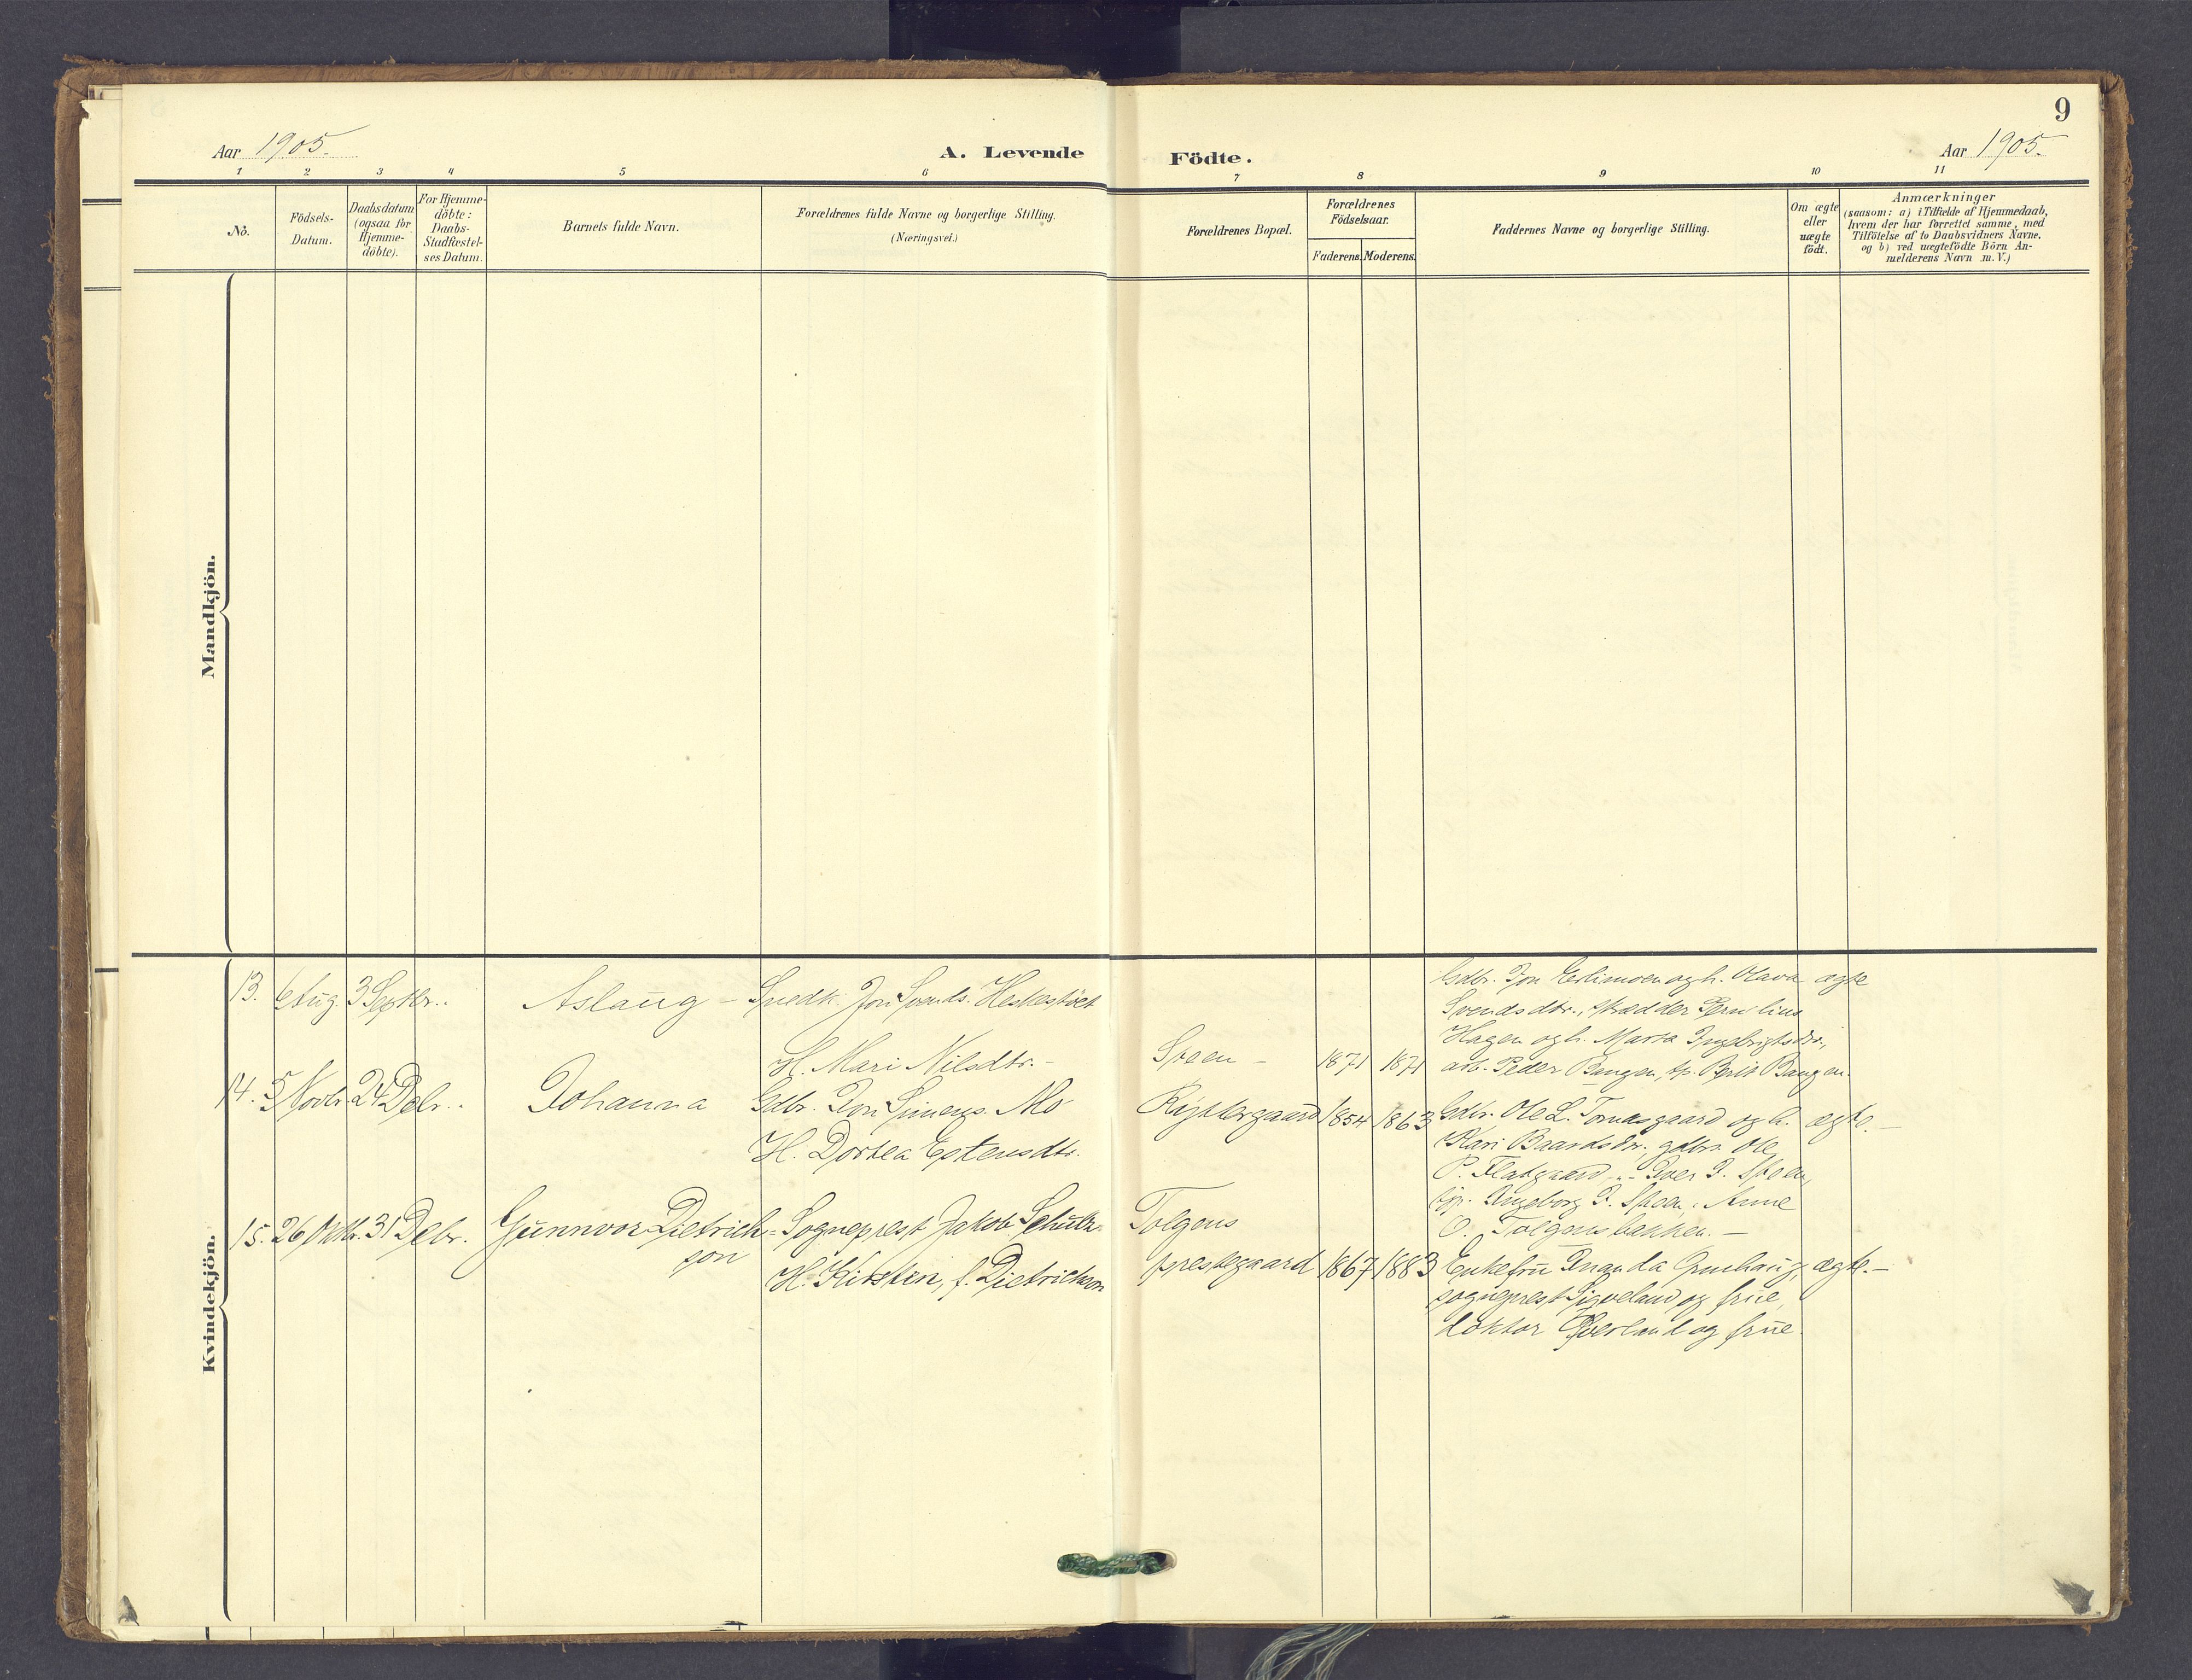 9
Aar 1905.
A. Levende Födte.
Aar 1905.
1 2 3 4 5 6 7 8 9 10 11
No.
Födsels-
Datum.
Daabsdatum
(ogsaa for
Hjemme-
döbte).
For Hjemme-
döbte:
Daabs-
Stadfæstel-
ses Datum.
Barnets fulde Navn.
Forældrenes fulde Navne og borgerlige Stilling.
(Næringsvei.)
Forældrenes Bopæl.
Forældrenes
Födselsaar.
Faderens. Moderens.
Faddernes Navne og borgerlige Stilling.
Om ægte
eller
uægte
födt.
Anmærkninger
(saasom: a) i Tilfælde af Hjemmedaab,
hvem der har forrettet samme, med
Tilföielse af to Daabsvidners Navne,
og b) ved uægtefödte Börn An-
melderens Navn m.V.)
Mandkjön.
Kvindekjön.
13. 6 Aug. 3 Septbr.. Aslaug - Snedk. Jon Svends.
H. Mari Nilsdtr.-
Steen - 1871 1871
Gdbr. Jon og h. Olava
Svendsdtr., skrædder
Hagen og h. Marta Ingebrigtsdtr.,
arb. Peder Bangen, tp. Berit Bangen.
ægte
14. 5 Novbr. 24 Debr.. Johanna Gdbr. Jon Simens. Mo
H. Dortea Estensdtr.
1854 1863
Gdbr. Ole L. Tomasgaard og h.
Kari Baardsdtr. gdbr. Ole
P. Flatgaard, Iver J. Steen,
tp. Ingeborg J. Steen, Anne
O. Tolgensbakken.-
ægte.-
15. 26 Oktbr. 31 Debr. Gunnvor Dietrich-
son
Sogneprest Jakob Schultz.
H. Kirsten, f. Dietrichson
Tolgens
prestegaard 1867 1883
Enkefru
sogneprest Sigveland og frue,
doktor og frue.
ægte.-